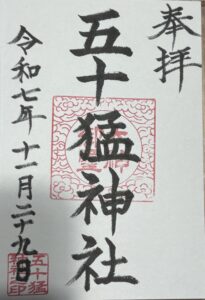 奉拝
五十猛神社
令和七年十一月二十九日
五十猛
神社印